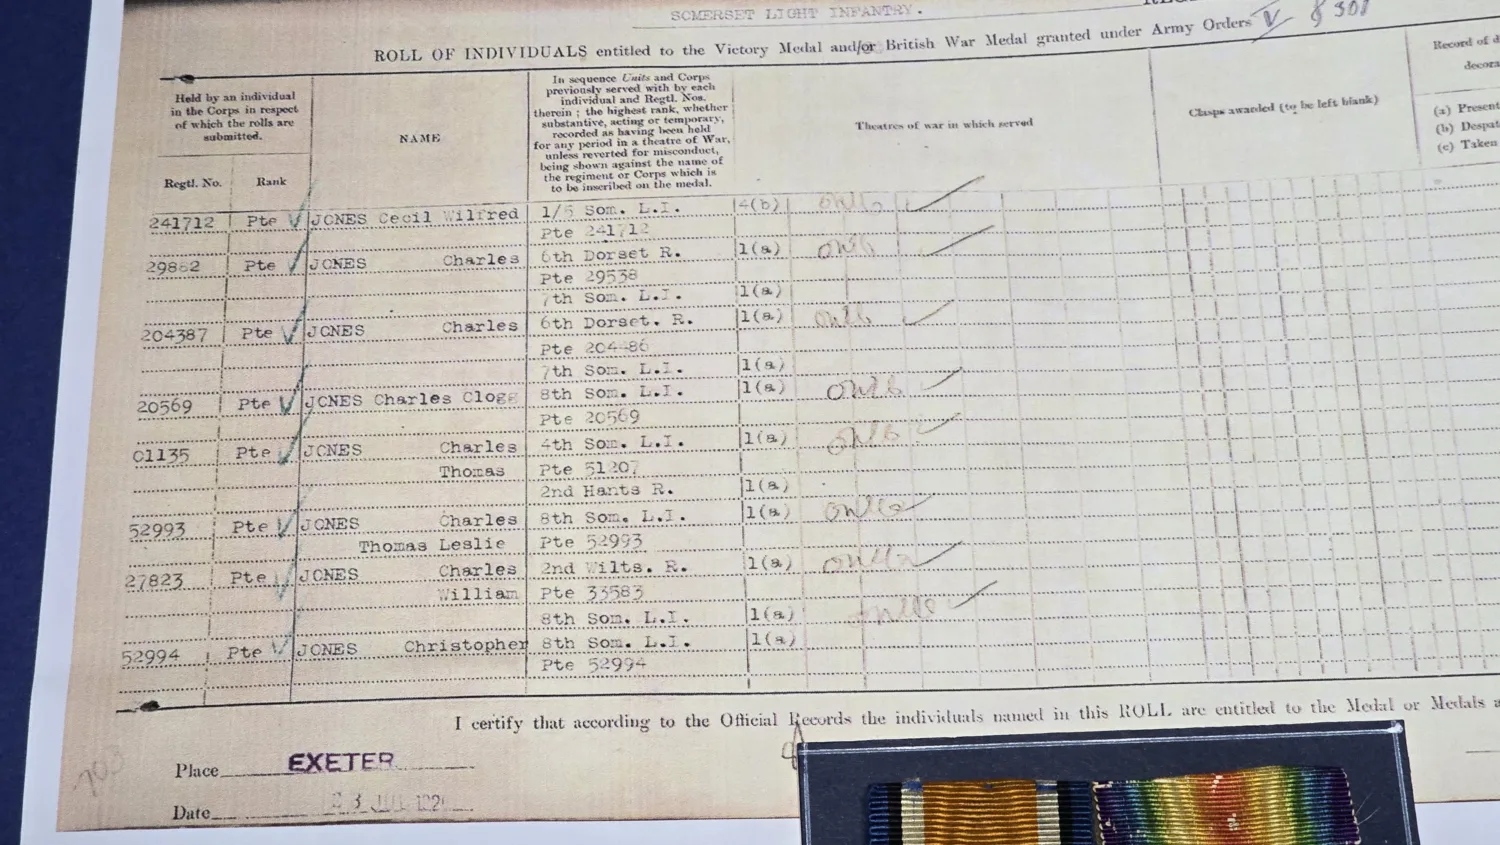 SOMERSET LIGHT INFANTRY.
ROLL OF INDIVIDUALS entitled to the Victory Medal and/or British War Medal granted under Army Orders
Held by an individual
in the Corps in respect
of which the rolls are
submitted.
Regtl. No. Rank
NAME
In sequence Units and Corps
previously served with by each
individual and Regtl. Nos.
therein ; the highest rank, whether
substantive, acting or temporary,
recorded as having been held
for any period in a theatre of War,
unless reverted for misconduct,
being shown against the name of
the regiment or Corps which is
to be inscribed on the medal.
Theatres of war in which served
Clasps awarded (to be left blank)
Record of d
decora
(a) Present
(b) Despat
(c) Taken
241712 Pte JONES Cecil Wilfred 1/5 Som. L.I. 4(b)
Pte 241712
Pte JONES Charles 6th Dorset R. 1(a)
Pte 29538
7th Som. L.I. 1(a)
204387 Pte JONES Charles 6th Dorset. R. 1(a)
Pte
7th Som. L.I. 1(a)
20569 Pte JONES Charles Clogg 8th Som. L.I. 1(a)
Pte 20569
Pte JONES Charles 4th Som. L.I. 1(a)
Thomas Pte 51207
2nd Hants R. 1(a)
52993 Pte JONES Charles 8th Som. L.I. 1(a)
Thomas Leslie Pte 52993
27823 Pte JONES Charles 2nd Wilts. R. 1(a)
William Pte 33583
8th Som. L.I. 1(a)
52994 Pte JONES Christopher 8th Som. L.I. 1(a)
Pte 52994
I certify that according to the Official Records the individuals named in this ROLL are entitled to the Medal or Medals a
Place EXETER
Date